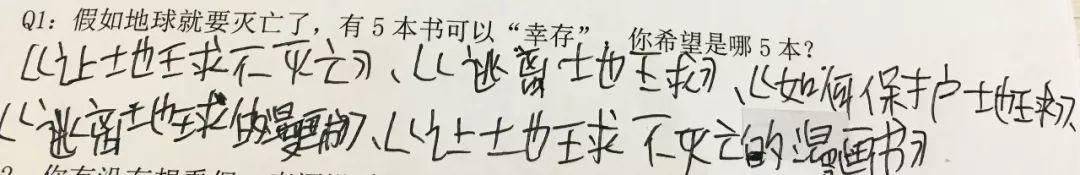 Q1：假如地球就要灭亡了，有5本书可以“幸存”，你希望是哪5本？
《让地球不灭亡》、《逃离地球》、《如何保护地球》、
《逃离地球的漫画书》、《让地球不灭亡的漫画书》